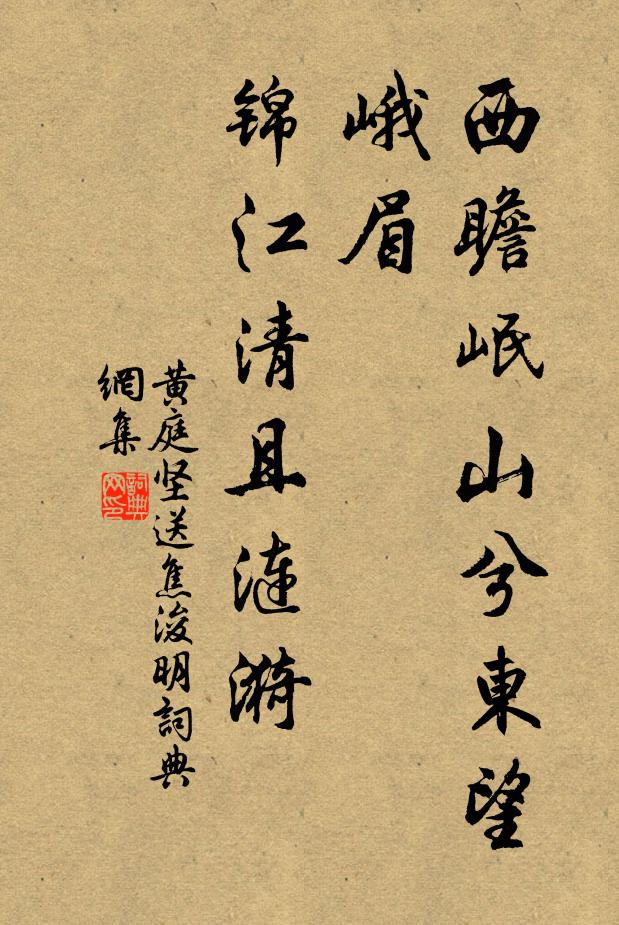 西瞻岷山兮東望
峨眉
锦江清且涟漪
黄庭坚送焦浚明詞典
網集
詞典
网印